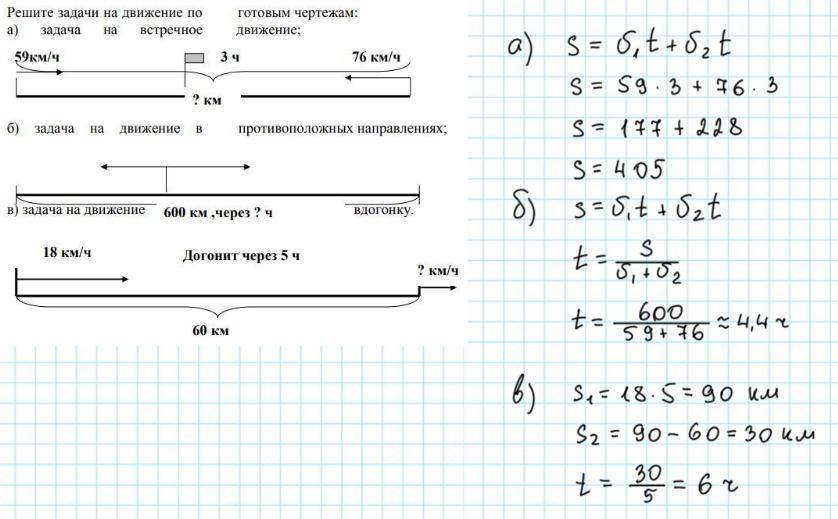 Решите задачи на движение по готовым чертежам:
а) задача на встречное движение;
59км/ч 3 ч 76 км/ч
? км
б) задача на движение в противоположных направлениях;
в) задача на движение 600 км ,через ? ч вдогонку.
18 км/ч Догонит через 5 ч ? км/ч
60 км
а) S = υ₁t + υ₂t
S = 59 · 3 + 76 · 3
S = 177 + 228
S = 405
б) S = υ₁t + υ₂t
t = S / υ₁ + υ₂
t = 600 / 59 + 76 ≈ 4,4 ч
в) S₁ = 18 · 5 = 90 км
S₂ = 90 - 60 = 30 км
t = 30 / 5 = 6 ч